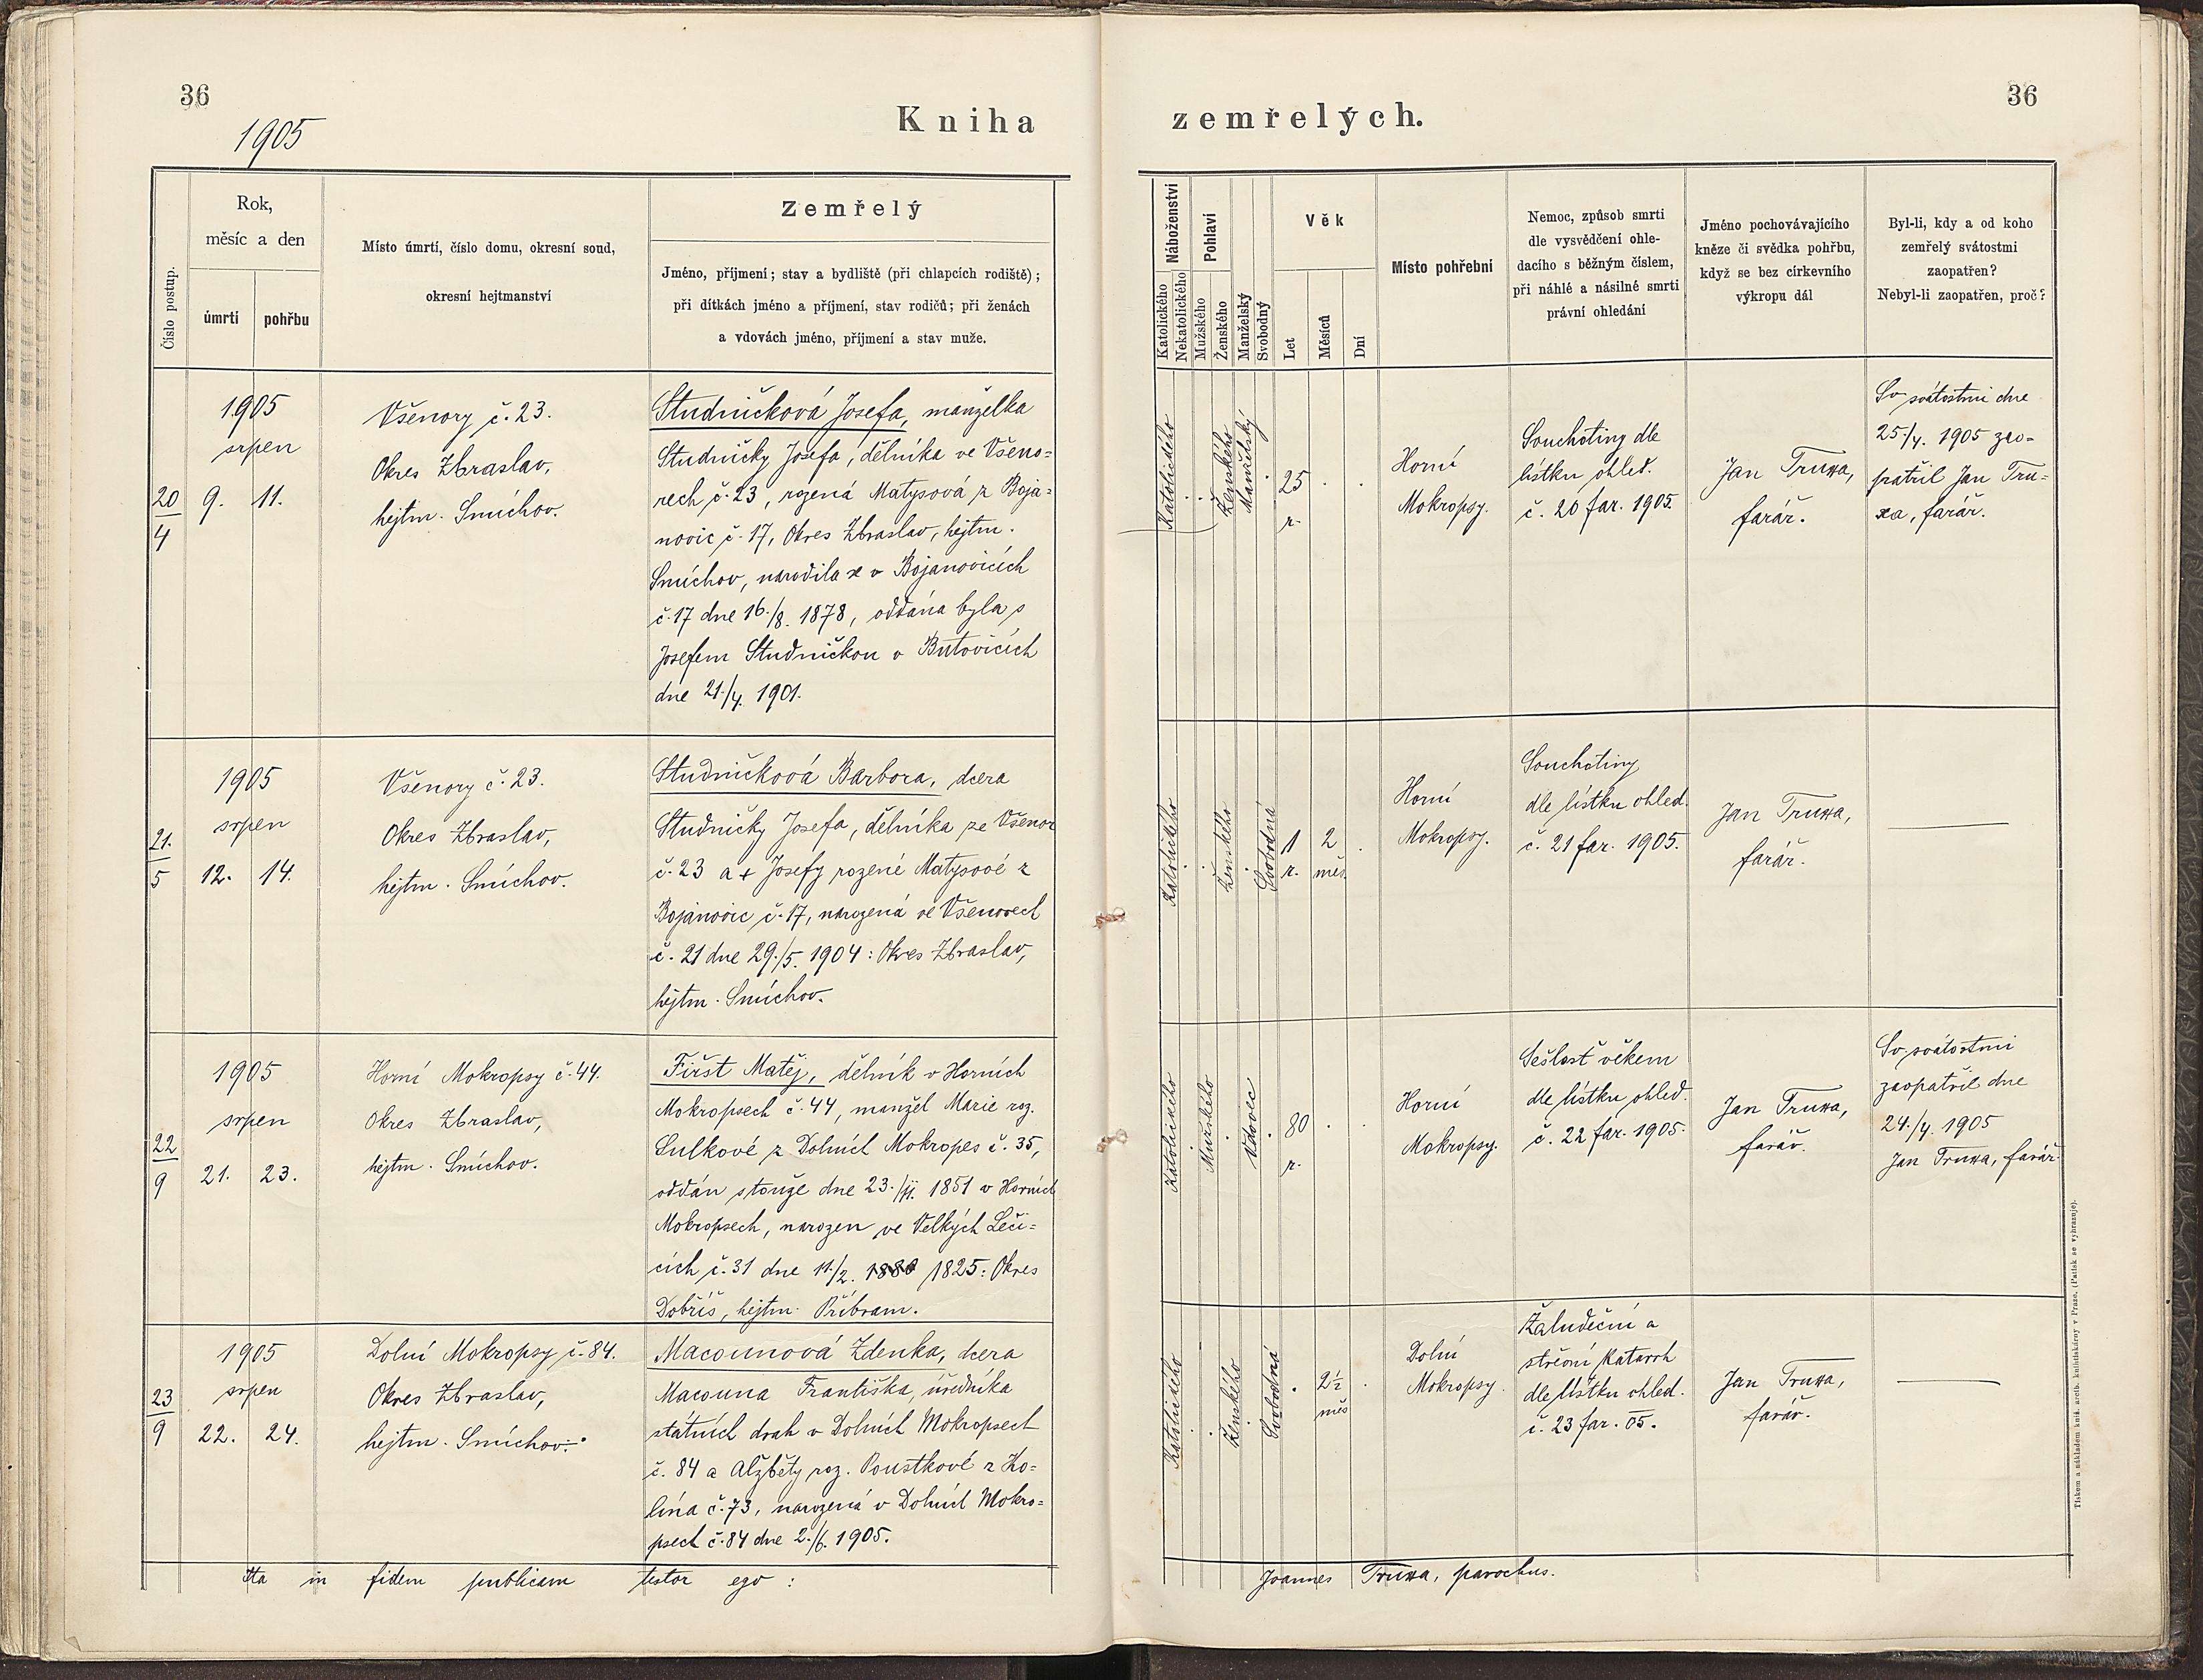 36
1905
Kniha
zemřelých.
36
Číslo postup.
Rok,
měsíc a den
úmrtí
pohřbu
Místo úmrtí, číslo domu, okresní soud,
okresní hejtmanství
Zemřelý
Jméno, příjmení; stav a bydliště (při chlapcích rodiště);
při dítkách jméno a příjmení, stav rodičů; při ženách
a vdovách jméno, příjmení a stav muže.
Náboženství
Katolického
Nekatolického
Pohlaví
Mužského
Ženského
Manželský
Svobodný
Věk
Let
Měsíců
Dní
Místo pohřební
Nemoc, způsob smrti
dle vysvědčení ohle-
dacího s běžným číslem,
při náhlé a násilné smrti
právní ohledání
Jméno pochovávajícího
kněze či svědka pohřbu,
když se bez církevního
výkropu dál
Byl-li, kdy a od koho
zemřelý svátostmi
zaopatřen?
Nebyl-li zaopatřen, proč?
20
4
1905
srpen
9. 11.
Všenory č. 23.
Okres Zbraslav,
hejtm. Smíchov.
Studničková Josefa, manželka
Studničky Josefa, dělníka ve Všeno=
rech č. 23, rozená Matysová z Boja=
novic č. 17, Okres Zbraslav, hejtm.
Smíchov, narodila se v Bojanovicích
č. 17 dne 16./8. 1878, oddána byla s
Josefem Studničkou v Butovicích
dne 21./4. 1901.
Katolického
Ženského
Manželský
25
r.
Horní
Mokropsy.
Souchotiny dle
lístku ohled.
č. 20 far. 1905.
Jan Truxa,
farář.
Sv. svátostmi dne
25./4. 1905 zao-
patřil Jan Tru=
xa, farář.
21.
5
1905
srpen
12. 14.
Všenory č. 23.
Okres Zbraslav,
hejtm. Smíchov.
Studničková Barbora, dcera
Studničky Josefa, dělníka ze Všenor
č. 23 a + Josefy rozené Matysové z
Bojanovic č. 17, narozená ve Všenorech
č. 21 dne 29./5. 1904: Okres Zbraslav,
hejtm. Smíchov.
Katolického
Ženského
Svobodná
1
r.
2
měs.
Horní
Mokropsy.
Souchotiny
dle lístku ohled.
č. 21 far. 1905.
Jan Truxa,
farář.
22
9
1905
srpen
21. 23.
Horní Mokropsy č. 44.
Okres Zbraslav,
hejtm. Smíchov.
Fiřst Matěj, dělník v Horních
Mokropsech č. 44, manžel Marie roz.
Sulkové z Dolních Mokropes č. 35,
oddán s touže dne 23./11. 1851 v Horních
Mokropsech, narozen ve Velkých Leči=
cích č. 31 dne 11./2. 1825: Okres
Dobříš, hejtm. Příbram.
Katolického
Mužského
Vdovec
80
r.
Horní
Mokropsy.
Sešlost věkem
dle lístku ohled.
č. 22 far. 1905.
Jan Truxa,
farář.
Sv. svátostmi
zaopatřil dne
24./4. 1905
Jan Truxa, farář
23
9
1905
srpen
22. 24.
Dolní Mokropsy č. 84.
Okres Zbraslav,
hejtm. Smíchov.
Macounová Zdenka, dcera
Macouna Františka, úředníka
státních drah v Dolních Mokropsech
č. 84 a Alžběty roz. Poustkové z Ko=
lína č. 73, narozená v Dolních Mokro=
psech č. 84 dne 2./6. 1905.
Katolického
Ženského
Svobodná
2 1/2
měs
Dolní
Mokropsy.
Žaludeční a
střevní katarrh
dle lístku ohled.
č. 23 far. 05.
Jan Truxa,
farář.
Ita in fidem publicam testor ego :
Joannes Truxa, parochus.
Tiskem a nákladem kníž. arcib. knihtiskárny v Praze. (Patisk se vyhrazuje).